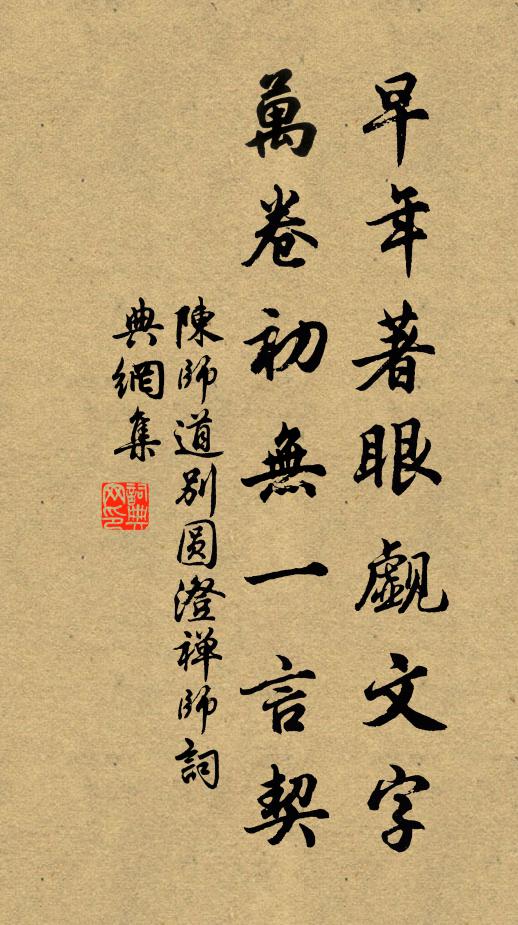 早年著眼覷文字
萬卷初無一言契
陳師道別圓澄禅師詞
典網集
詞典
网印